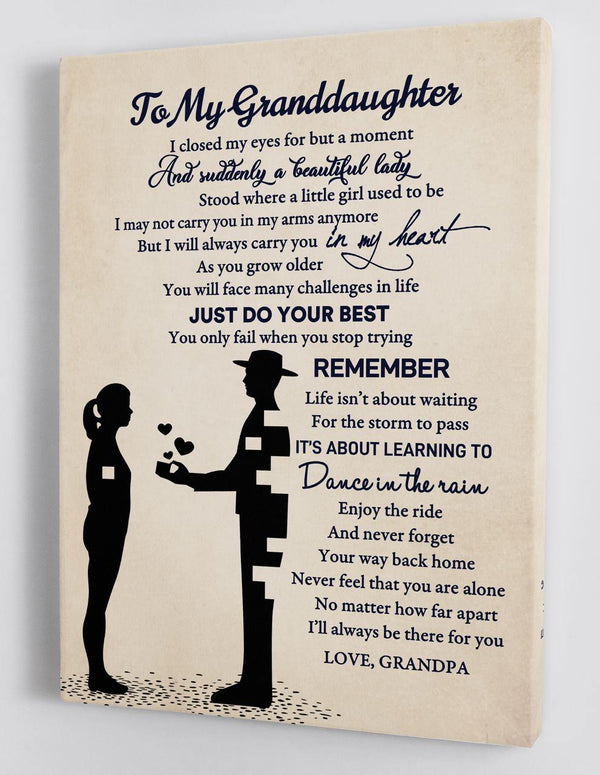 To My Granddaughter
I closed my eyes for but a moment
And suddenly a beautiful lady
Stood where a little girl used to be
I may not carry you in my arms anymore
But I will always carry you in my heart
As you grow older
You will face many challenges in life
JUST DO YOUR BEST
You only fail when you stop trying
REMEMBER
Life isn't about waiting
For the storm to pass
IT'S ABOUT LEARNING TO
Dance in the rain
Enjoy the ride
And never forget
Your way back home
Never feel that you are alone
No matter how far apart
I'll always be there for you
LOVE, GRANDPA